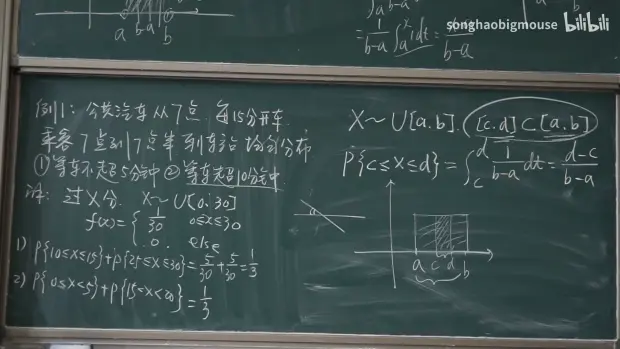 songhaobigmouse bilibili
a b-a b
= 1/(b-a) ∫ₐˣ 1dt = x-a/b-a
例1: 公共汽车从7点, 每15分开车.
乘客7点到7点半到车站 均匀分布
①等车不超5分钟 ②等车超10分钟.
解: 过X分. X~U[0.30]
f(x)={ 1/30 0≤x≤30
0. else
1) P{10≤X≤15}+P{25≤X≤30}=5/30+5/30=1/3
2) P{0≤X<5}+P{15<X<20}=1/3
X~U[a.b]. [c.d]⊂[a.b]
P{c≤X≤d}=∫_c^d 1/(b-a) dt=(d-c)/(b-a)
a c d b